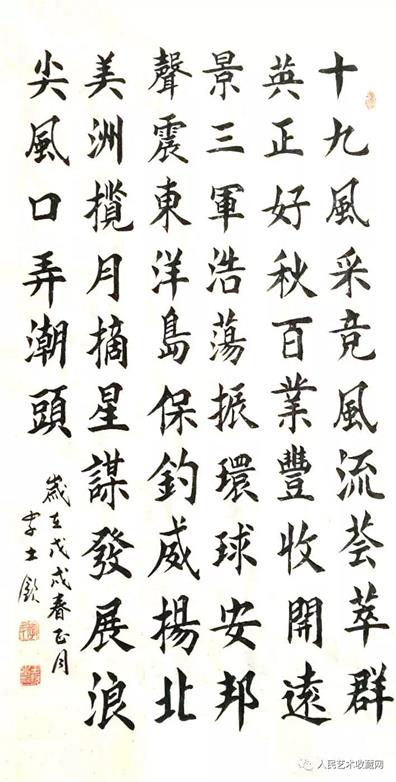 十九風采竞風流荟萃群
英正好秋百業豐收開遠
景三軍浩蕩振環球安邦
聲震東洋島保釣威揚北
美洲攬月摘星謀發展浪
尖風口弄潮頭
歲在戊戌春正月
李士欽
人民艺术收藏网